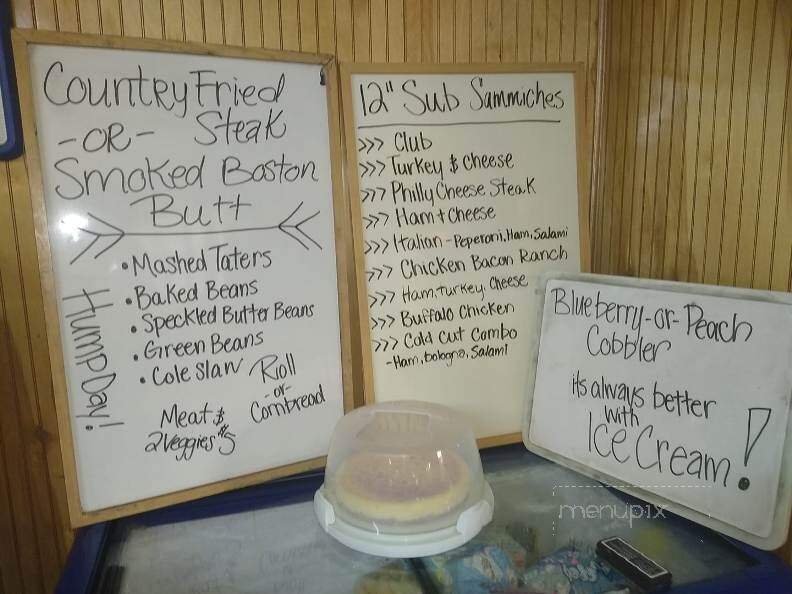 Country Fried
-OR- Steak
Smoked Boston
Butt
Hump Day!
• Mashed Taters
• Baked Beans
• Speckled Butter Beans
• Green Beans
• Cole Slaw
Roll
-or-
Cornbread
Meat &
2 Veggies $5
12" Sub Sammiches
>>> Club
>>> Turkey & Cheese
>>> Philly Cheese Steak
>>> Ham + Cheese
>>> Italian - Peperoni, Ham, Salami
>>> Chicken Bacon Ranch
>>> Ham, Turkey, Cheese
>>> Buffalo Chicken
>>> Cold Cut Combo
- Ham, bologna, Salami
Blueberry -or- Peach
Cobbler
its always better
with
Ice Cream!
menupix